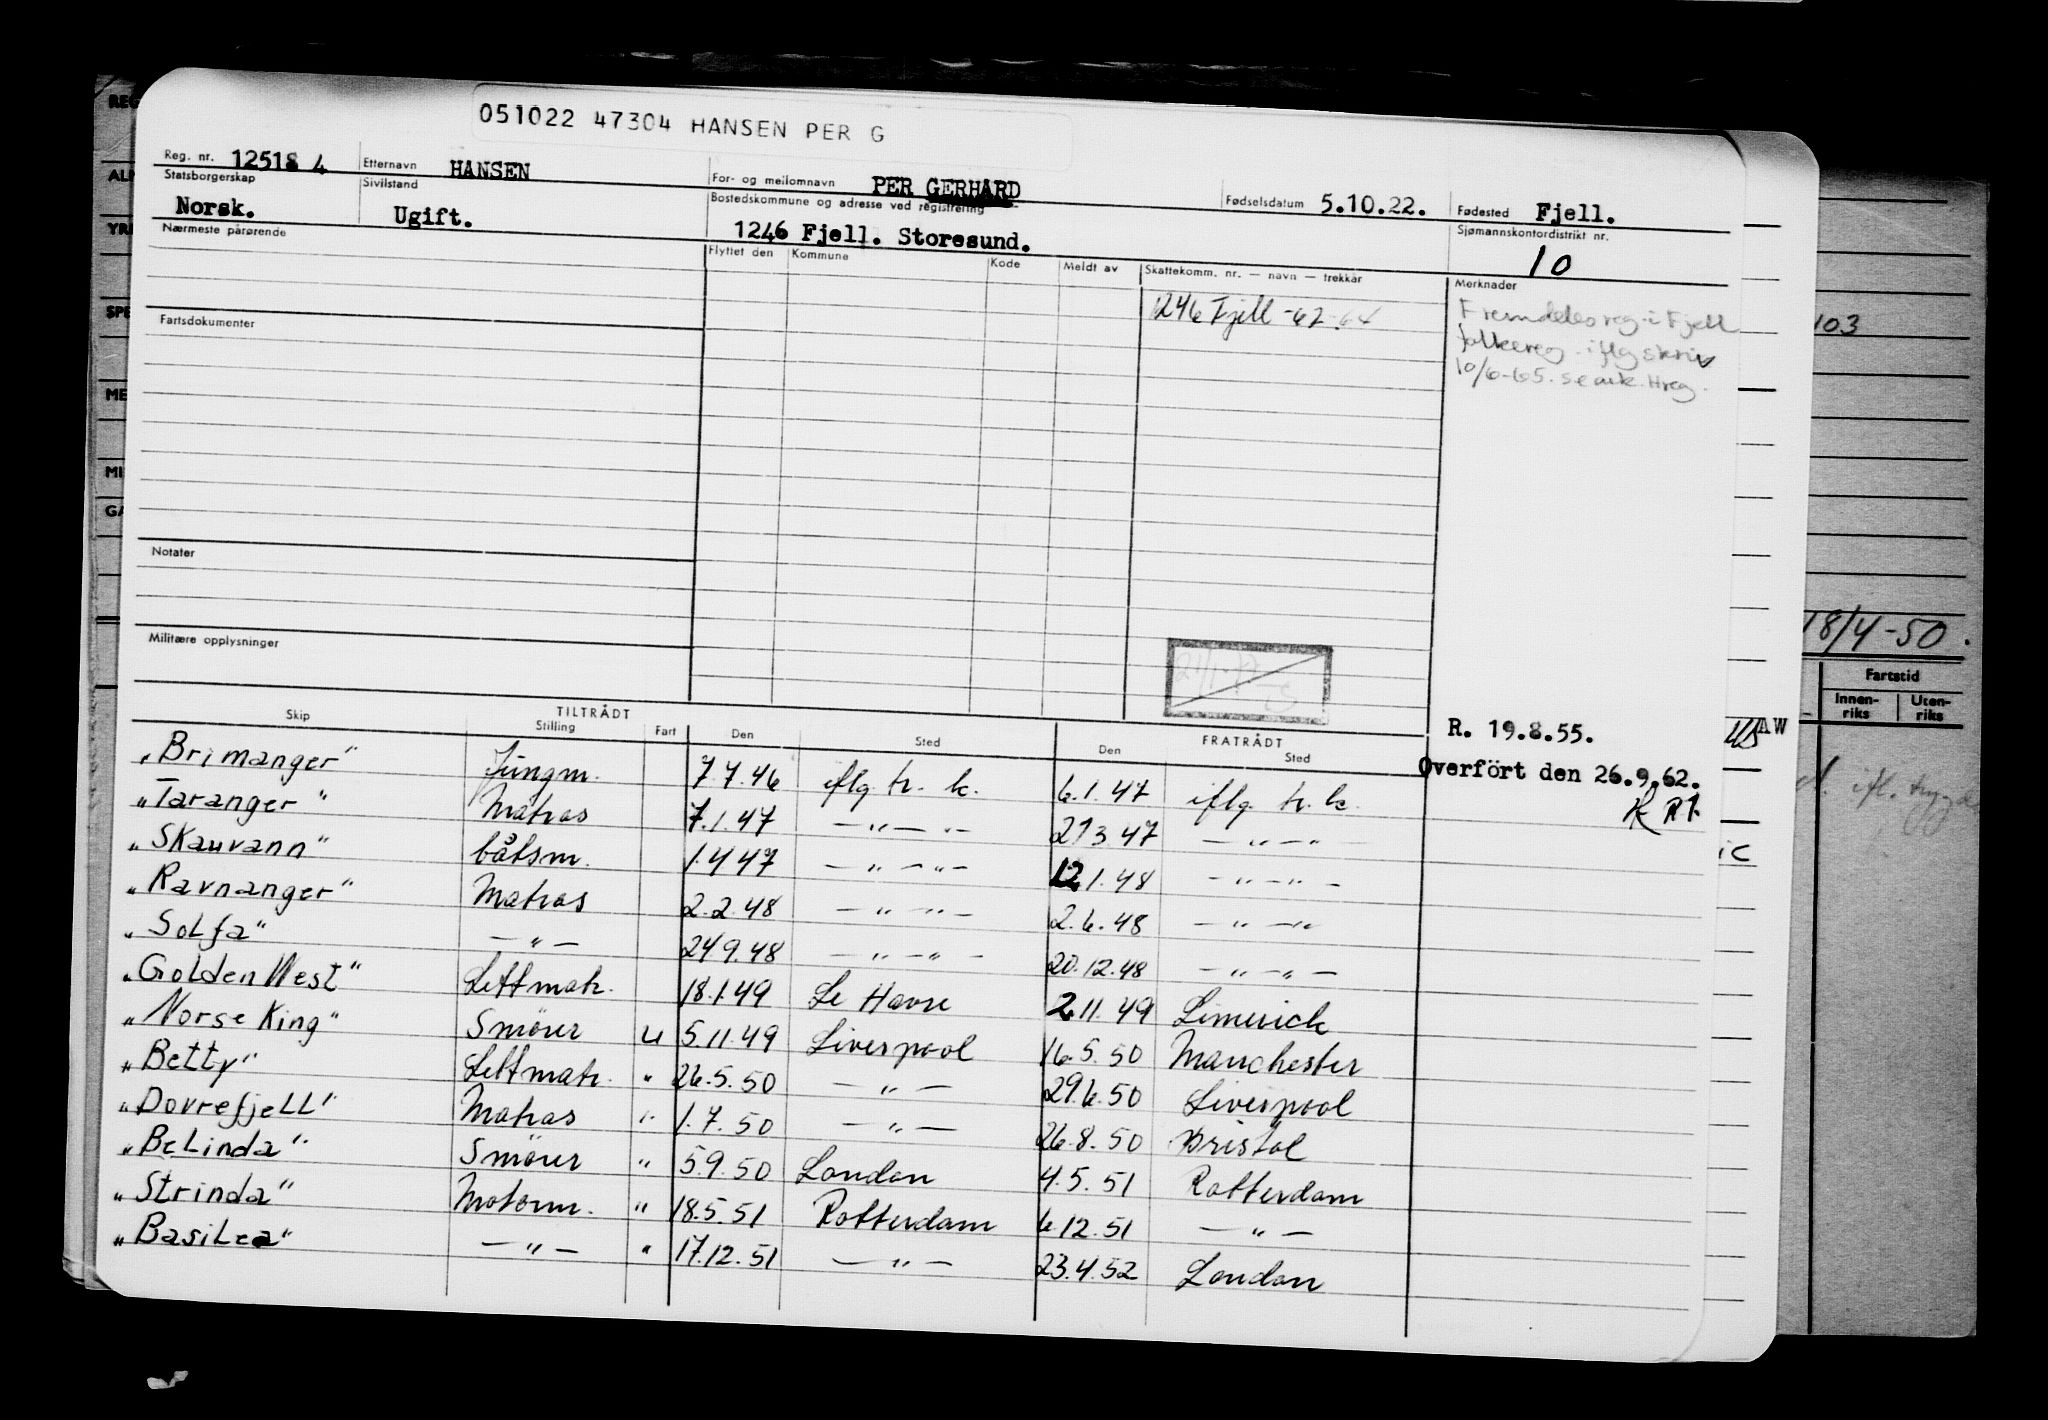 051022 47304 HANSEN PER G
Reg. nr. 12518 4 Etternavn HANSEN For- og mellomnavn PER GERHARD Fødselsdatum 5.10.22. Fødested Fjell.
Statsborgerskap Norsk. Sivilstand Ugift. Bostedskommune og adresse ved registrering 1246 Fjell. Storesund. Sjømannskontordistrikt nr. 10
Nærmeste pårørende Flyttet den Kommune Kode Meldt av Skattekomm. nr. — navn — trekkår Merknader
1246 Fjell -62-64
Fremdeles reg. i Fjell
folkereg. iflg skriv
10/6-65. se ark. Hreg.
Fartsdokumenter
Notater
Militære opplysninger
R. 19.8.55.
Overført den 26.9.62.
TILTRÅDT FRATRÅDT
Skip Stilling Fart Den Sted Den Sted
"Brimanger" Jungm. 7.7.46 iflg tr. k. 6.1.47 iflg. tr. k.
"Taranger" Matros 7.1.47 — " — " — 21 3 47 — " — " —
"Skauvann" båtsm. 1.4 47 — " — " — 12 1.48 — " — " —
"Ravnanger" Matros 2.2.48 — " — " — 2.6.48 — " — " —
"Solfa" — " — 24 9.48 — " — " — 20.12.48 — " — " —
"Golden West" Lettmatr. 18.1.49 Le Havre 2.11.49 Limerick
"Norse King" Smører U 5.11.49 Liverpool 16.5.50 Manchester
"Betty" Lettmatr. " 26.5.50 — " — 29.6.50 Liverpool
"Dovrefjell" Matros " 1.7.50 — " — 26.8.50 Bristol
"Belinda" Smører " 5.9.50 London 4.5.51 Rotterdam
"Strinda" Motorm. " 18.5.51 Rotterdam 6.12.51 — " —
"Basilea" — " — " 17.12.51 — " — 23.4.52 London
103
18/4-50.
Fartstid
Innen-
riks
Uten-
riks
AW